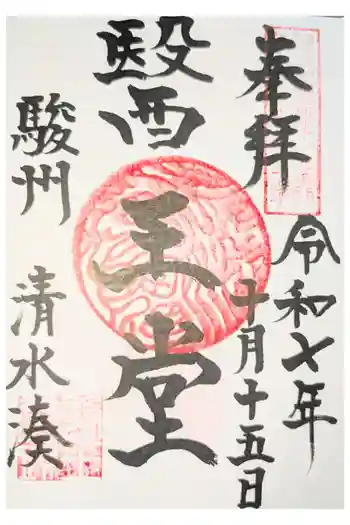 奉拝
令和七年
十月十五日
醫王堂
駿州 清水湊